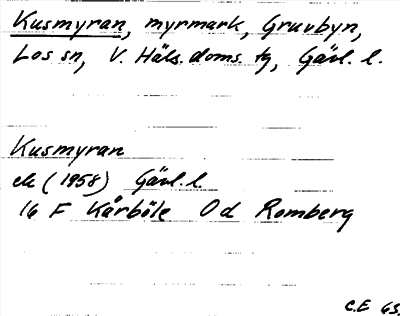 Kusmyran, myrmark, Gruvbyn,
Los sn, V. Häls. doms. tg, Gävl. l.
Kusmyran
ek (1958) Gävl. l.
16 F Kårböle Od Romberg
C.E 65.